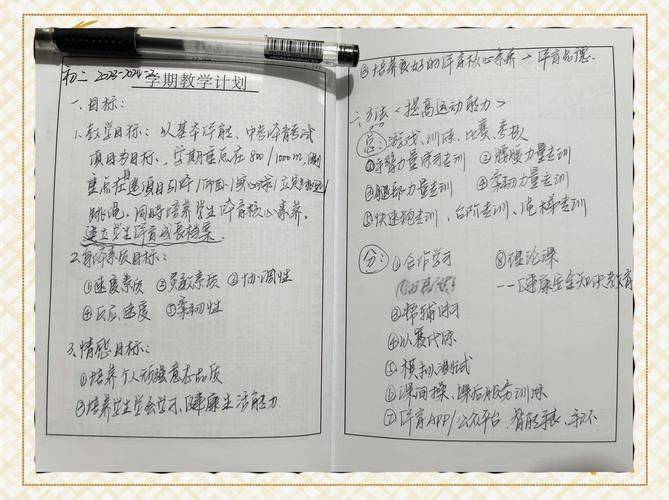 初二 2023-2024-2
学期教学计划
一、目标：
1、教学目标：以基本体能、中考体育考试
项目为目标，学期重点在800/1000m,
重点在选项目引体/仰卧/实心球/立定
跳绳，同时培养学生体育核心素养，
建立学生体育成长档案。
2、身体素质目标：
①速度素质 ②灵敏素质 ③协调性
④反应速度 ⑤柔韧性
3、情感目标：
①培养个人顽强意志品质
②培养学生学会学习、健康生活能力
③培养良好的体育核心素养→体育品德.
二、方法<提高运动能力>
总：游戏、训练、比赛、考核
①手臂力量练习专训 ②腰腹力量专训
③腿部力量专训 ④柔韧力量专训
⑤快速跑专训、台阶专训、绳梯专训
分：①合作学习 ⑧理论课
--健康安全知识教育
③
④以赛代练
⑤模拟测试
⑥课间操、课后服务训练
⑦体育APP/公众平台、智能手表、手环